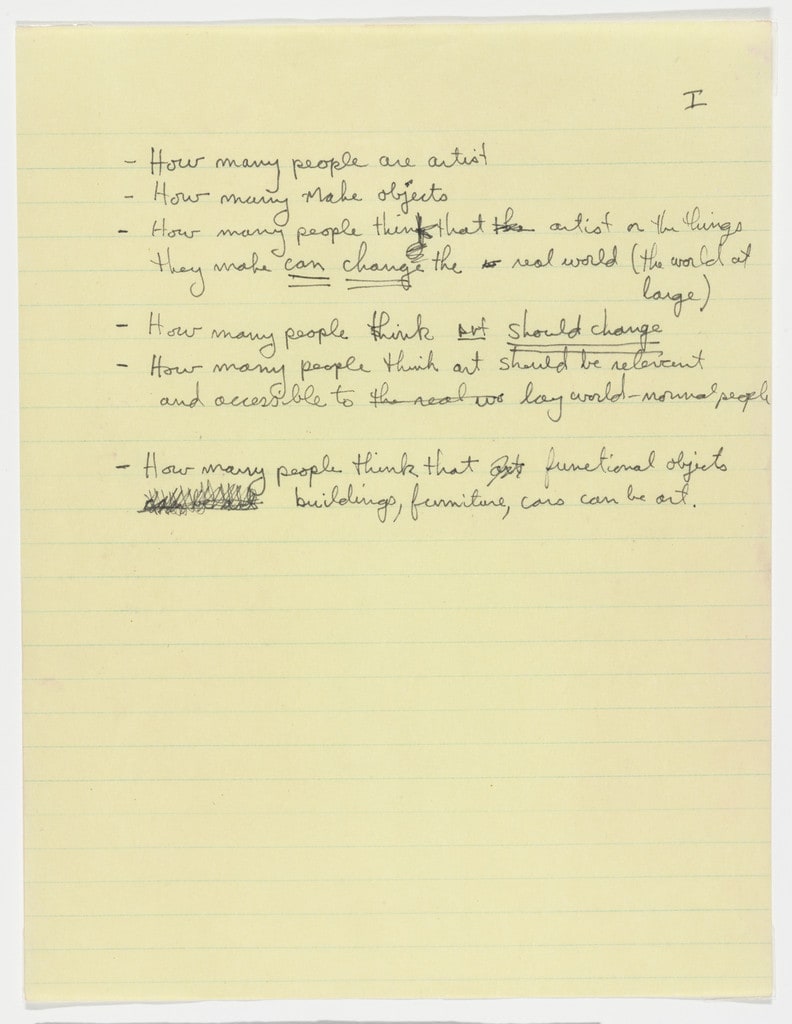 I
- How many people are artist
- How many make objects
- How many people think that the artist or the things
they make can change the real world (the world at
large)
- How many people think art should change
- How many people think art should be relevent
and accessible to the real wo lay world - normal people
- How many people think that functional objects
can be art buildings, furniture, cars can be art.